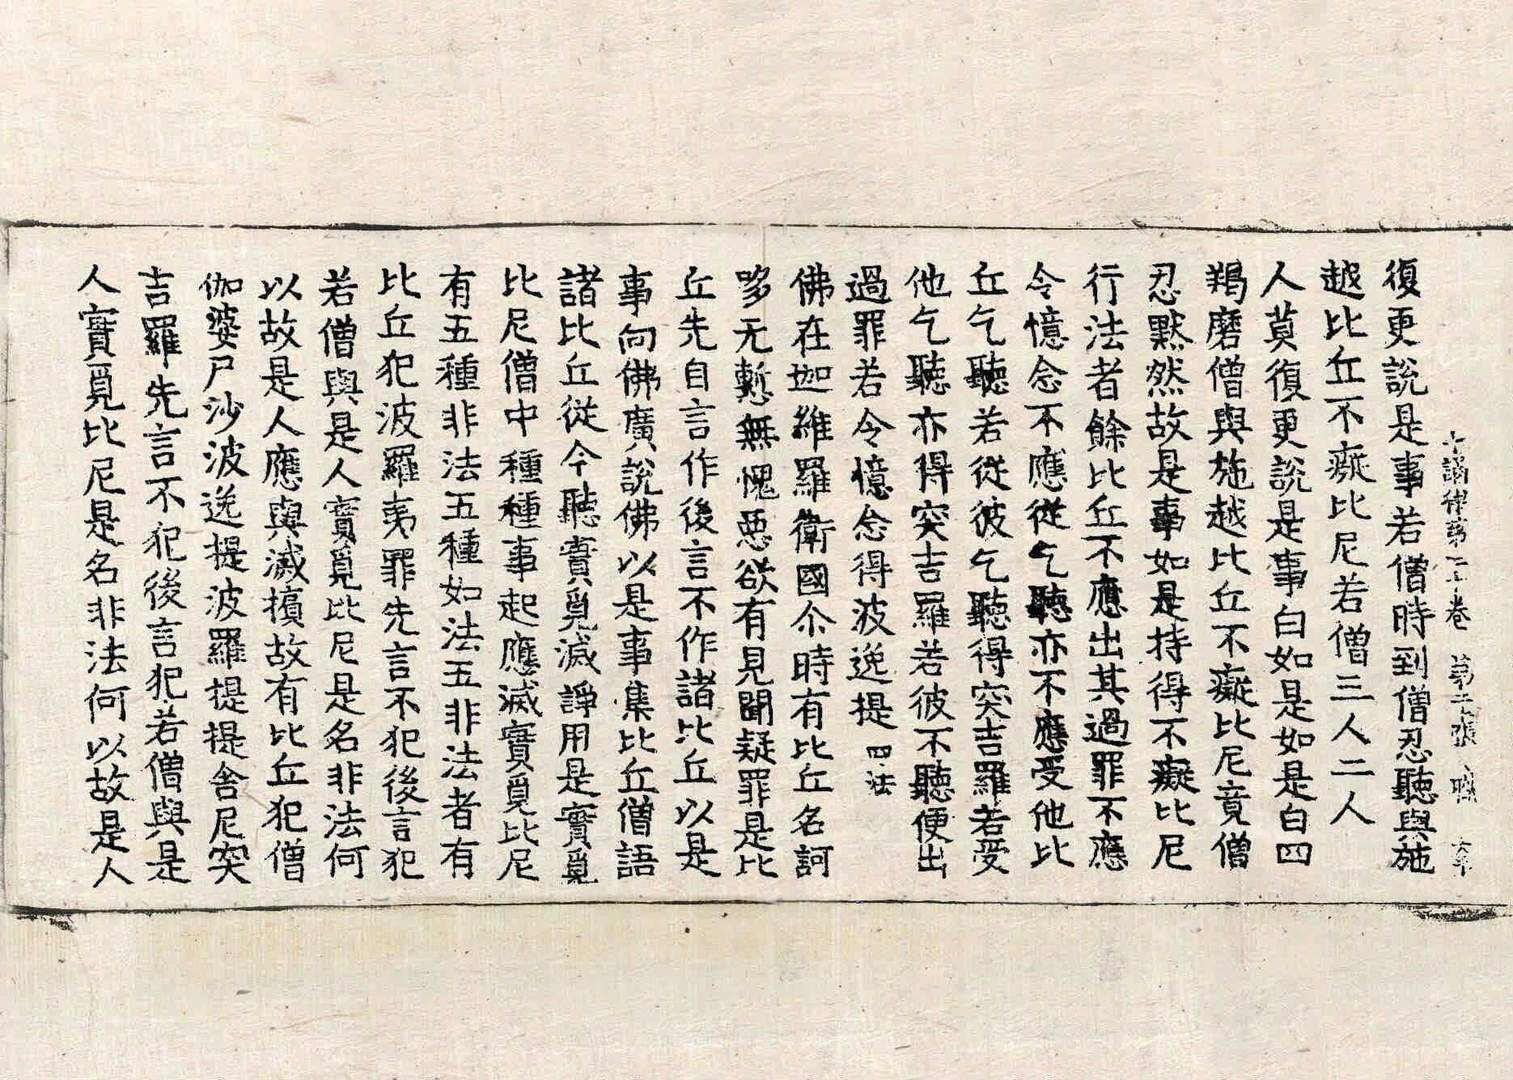 十誦律第二十卷
復更說是事若僧時到僧忍聽與施
越比丘不癡比尼若僧三人二人
人莫復更說是事白如是如是白四
羯磨僧與施越比丘不癡比尼竟僧
忍默然故是事如是持得不癡比尼
行法者餘比丘不應出其過罪不應
令憶念不應從乞聽亦不應受他比
丘乞聽若從彼乞聽得突吉羅若受
他乞聽亦得突吉羅若彼不聽便出
過罪若令憶念得波逸提 四法
佛在迦維羅衛國尒時有比丘名訶
哆无慙無愧惡欲有見聞疑罪是比
丘先自言作後言不作諸比丘以是
事向佛廣說佛以是事集比丘僧語
諸比丘從今聽實覓滅諍用是實覓
比尼僧中種種事起應滅實覓比尼
有五種非法五種如法五非法者有
比丘犯波羅夷罪先言不犯後言犯
若僧與是人實覓比尼是名非法何
以故是人應與滅擯故有比丘犯僧
伽婆尸沙波逸提波羅提提舍尼突
吉羅先言不犯後言犯若僧與是
人實覓比尼是名非法何以故是人